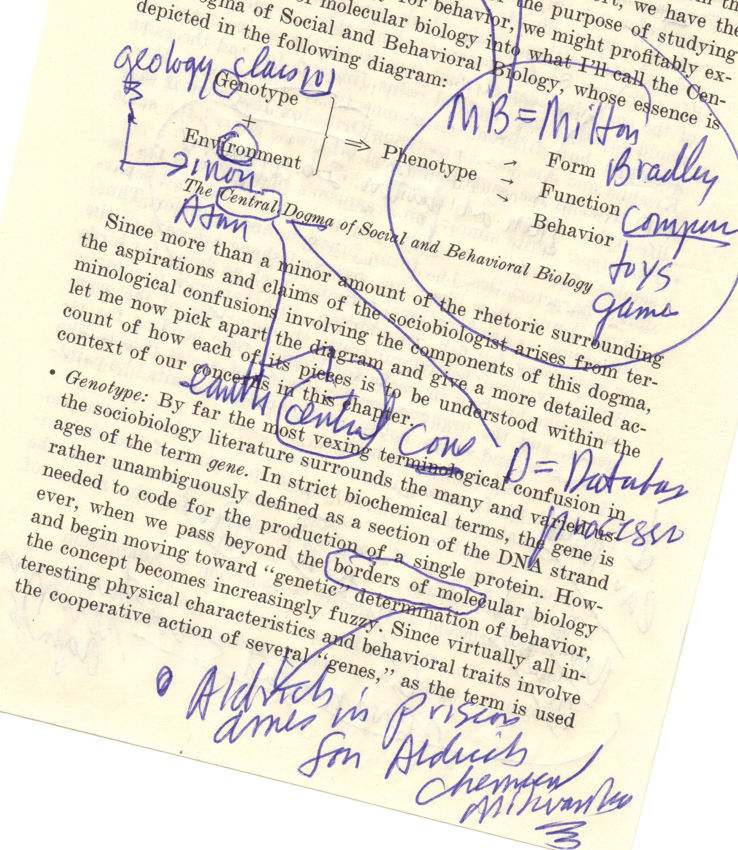 for behavior, we have the
of molecular biology into the purpose of studying
ogma of Social and Behavioral Biology, we might profitably ex-
depicted in the following diagram: what I'll call the Cen-
whose essence is
geology class 101
Genotype
+
Environment
⇒ Phenotype
→ Form
→ Function
→ Behavior
MB = Milton
Bradley
toys
game
iron
The Central Dogma of Social and Behavioral Biology
Since more than a minor amount of the rhetoric surrounding
the aspirations and claims of the sociobiologist arises from ter-
minological confusions involving the components of this dogma,
let me now pick apart the diagram and give a more detailed ac-
count of how each of its pieces is to be understood within the
context of our concerns in this chapter.
earth central Core
D = Database
Processo
• Genotype: By far the most vexing terminological confusion in
the sociobiology literature surrounds the many and varied us-
ages of the term gene. In strict biochemical terms, the gene is
rather unambiguously defined as a section of the DNA strand
needed to code for the production of a single protein. How-
ever, when we pass beyond the borders of molecular biology
and begin moving toward "genetic" determination of behavior,
the concept becomes increasingly fuzzy. Since virtually all in-
teresting physical characteristics and behavioral traits involve
the cooperative action of several "genes," as the term is used
Aldrich
ames in prison
for Aldrich
Chemical
Milwaukee